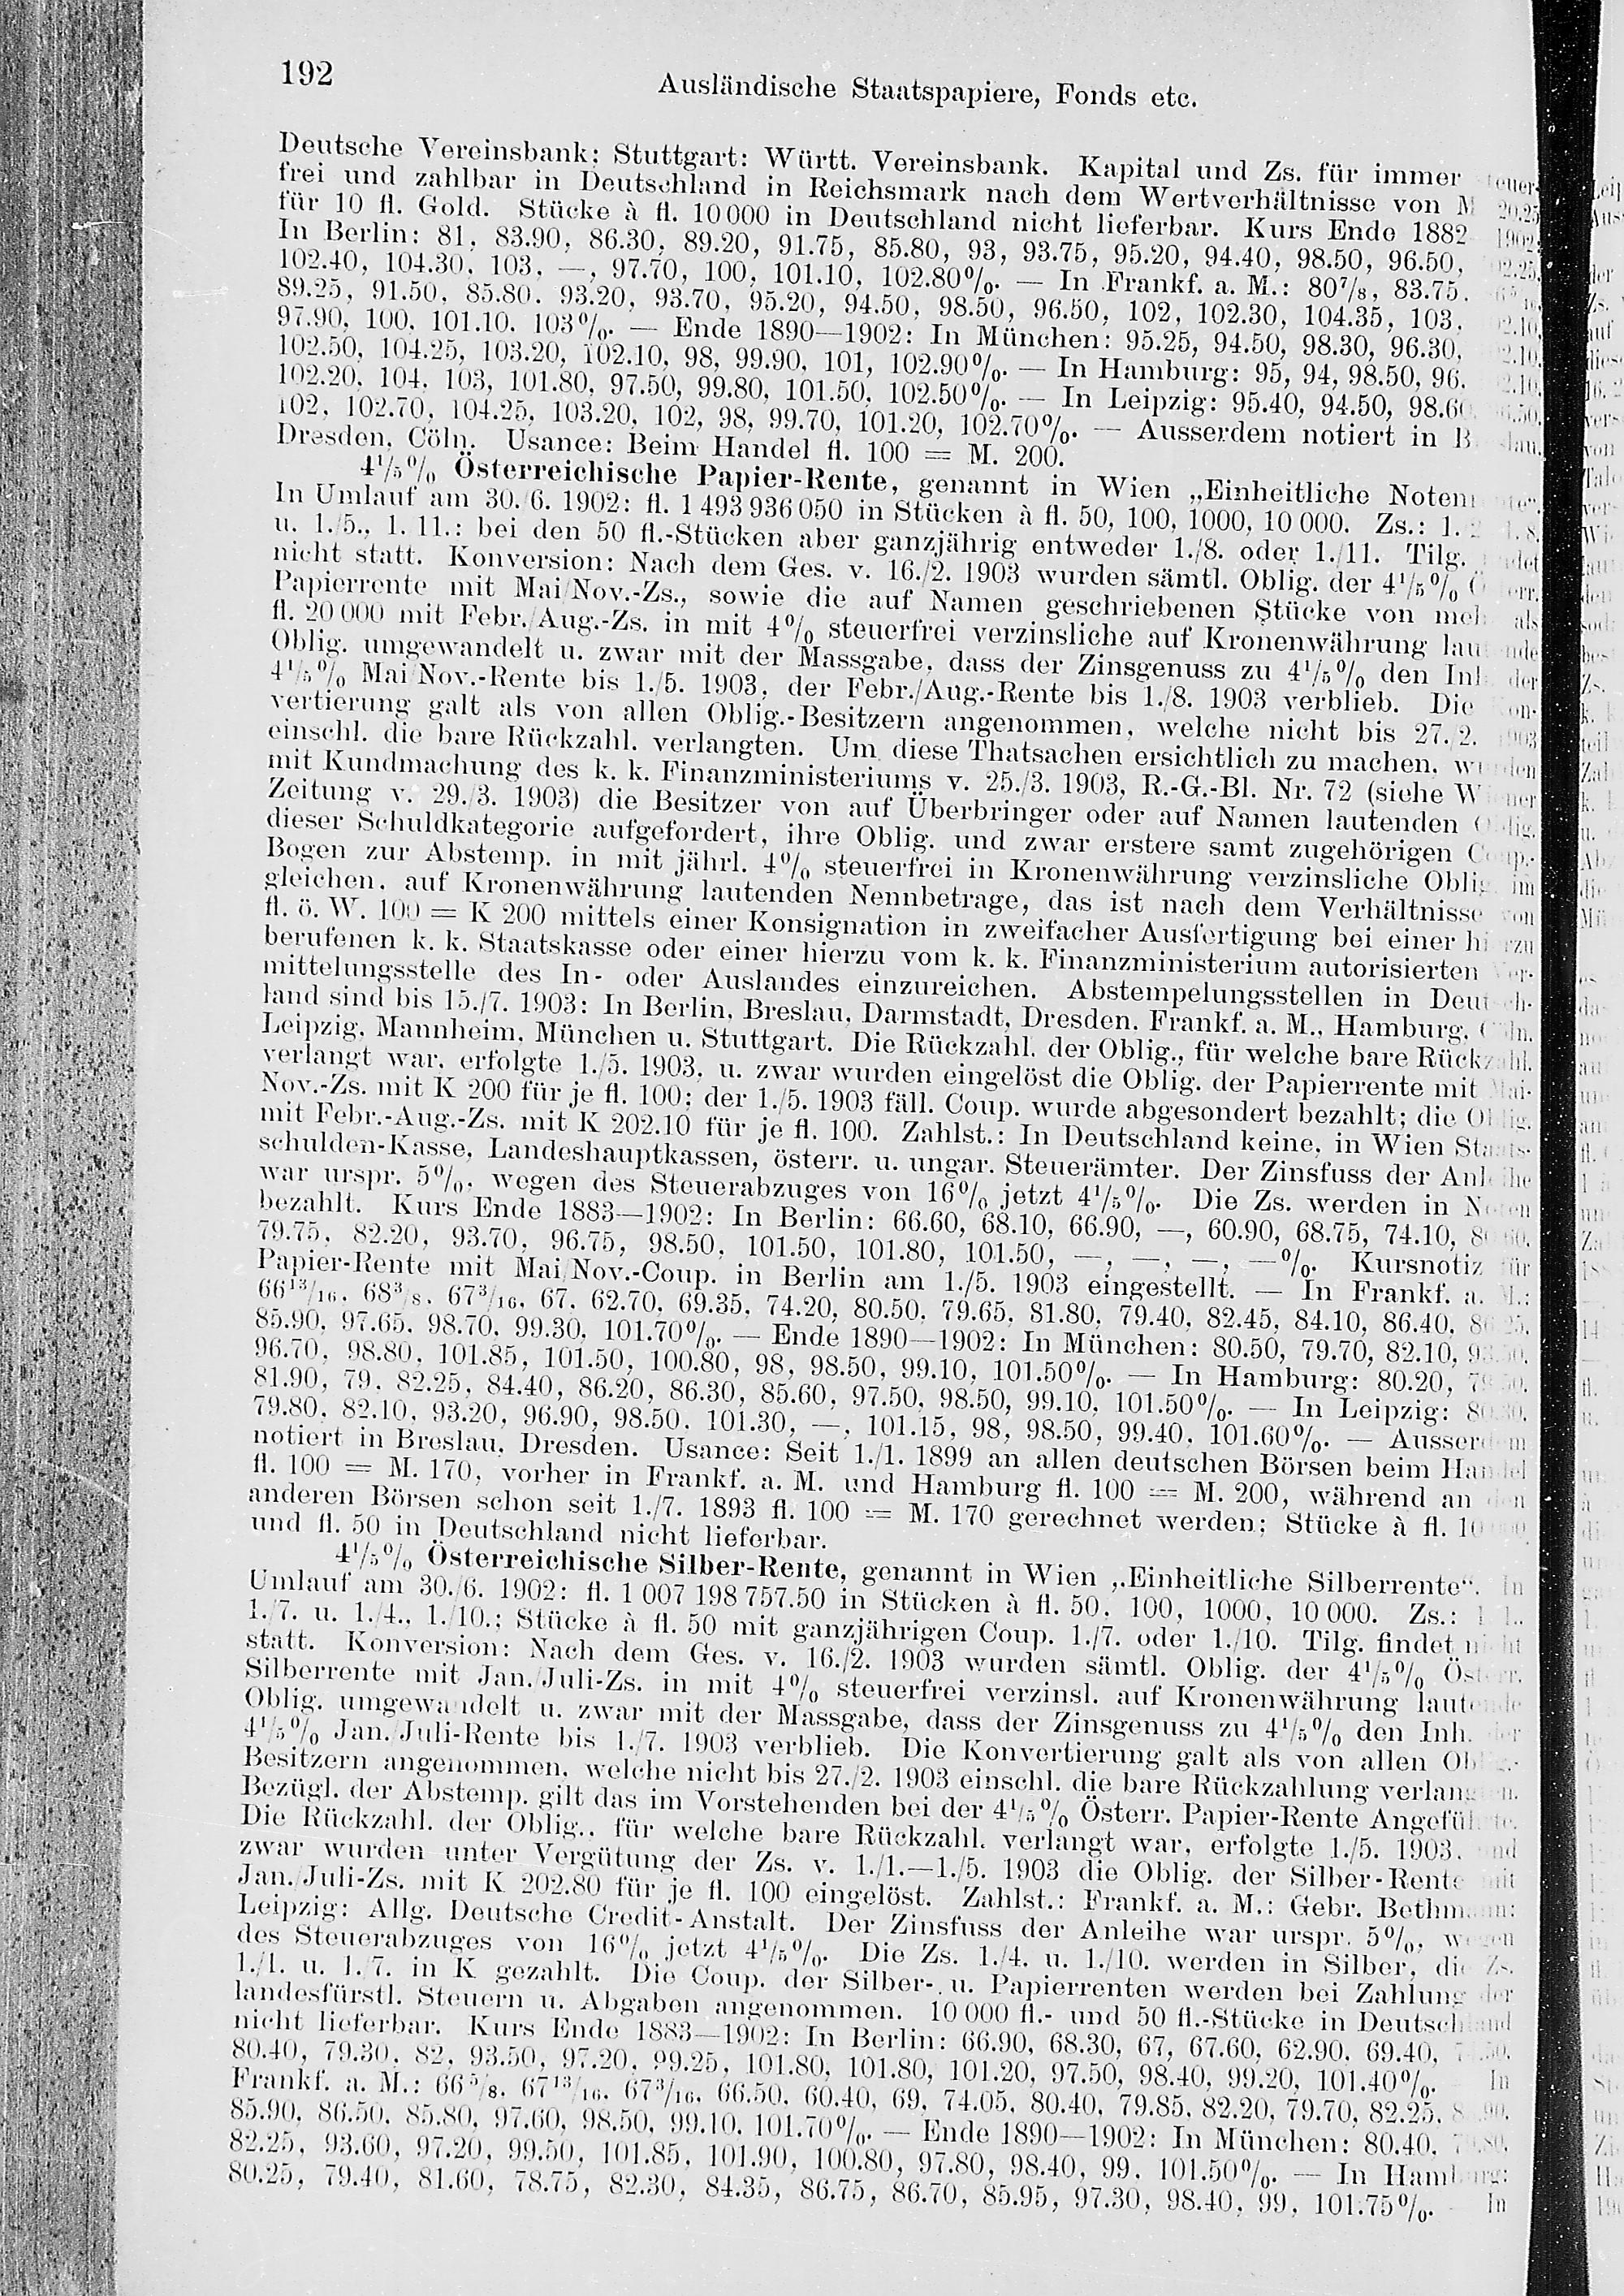 192
Ausländische Staatspapiere, Fonds etc.
Deutsche Vereinsbank: Stuttgart: Württ. Vereinsbank. Kapital und Zs. für immer steuer-
frei und zahlbar in Deutschland in Reichsmark nach dem Wertverhältnisse von M 20.25
für 10 fl. Gold. Stücke à fl. 10000 in Deutschland nicht lieferbar. Kurs Ende 1882 1902:
In Berlin: 81, 83.90, 86.30, 89.20, 91.75, 85.80, 93, 93.75, 95.20, 94.40, 98.50, 96.50,
102.40, 104.30, 103, —, 97.70, 100, 101.10, 102.80%. — In Frankf. a. M.: 80⁷/₈, 83.75,
89.25, 91.50, 85.80, 93.20, 93.70, 95.20, 94.50, 98.50, 96.50, 102, 102.30, 104.35, 103,
97.90, 100, 101.10, 103%. — Ende 1890—1902: In München: 95.25, 94.50, 98.30, 96.30,
102.50, 104.25, 103.20, 102.10, 98, 99.90, 101, 102.90%. — In Hamburg: 95, 94, 98.50, 96.
102.20, 104, 103, 101.80, 97.50, 99.80, 101.50, 102.50%. — In Leipzig: 95.40, 94.50, 98.60
102, 102.70, 104.25, 103.20, 102, 98, 99.70, 101.20, 102.70%. — Ausserdem notiert in Breslau,
Dresden, Cöln. Usance: Beim Handel fl. 100 = M. 200.
4¹/₅% Österreichische Papier-Rente, genannt in Wien „Einheitliche Notenrente“.
In Umlauf am 30./6. 1902: fl. 1 493 936 050 in Stücken à fl. 50, 100, 1000, 10 000. Zs.: 1. 1./8.
u. 1./5., 1. 11.: bei den 50 fl.-Stücken aber ganzjährig entweder 1./8. oder 1./11. Tilg. findet
nicht statt. Konversion: Nach dem Ges. v. 16./2. 1903 wurden sämtl. Oblig. der 4¹/₅% Österr.
Papierrente mit Mai/Nov.-Zs., sowie die auf Namen geschriebenen Stücke von mehr als
fl. 20 000 mit Febr./Aug.-Zs. in mit 4% steuerfrei verzinsliche auf Kronenwährung lautende
Oblig. umgewandelt u. zwar mit der Massgabe, dass der Zinsgenuss zu 4¹/₅% den Inh. der
4¹/₅% Mai/Nov.-Rente bis 1./5. 1903, der Febr./Aug.-Rente bis 1./8. 1903 verblieb. Die Kon-
vertierung galt als von allen Oblig.-Besitzern angenommen, welche nicht bis 27./2. 1903
einschl. die bare Rückzahl. verlangten. Um diese Thatsachen ersichtlich zu machen, wurden
mit Kundmachung des k. k. Finanzministeriums v. 25./3. 1903, R.-G.-Bl. Nr. 72 (siehe Wiener
Zeitung v. 29./3. 1903) die Besitzer von auf Überbringer oder auf Namen lautenden Oblig.
dieser Schuldkategorie aufgefordert, ihre Oblig. und zwar erstere samt zugehörigen Coup.-
Bogen zur Abstemp. in mit jährl. 4% steuerfrei in Kronenwährung verzinsliche Oblig. im
gleichen, auf Kronenwährung lautenden Nennbetrage, das ist nach dem Verhältnisse von
fl. ö. W. 100 = K 200 mittels einer Konsignation in zweifacher Ausfertigung bei einer hierzu
berufenen k. k. Staatskasse oder einer hierzu vom k. k. Finanzministerium autorisierten Ver-
mittelungsstelle des In- oder Auslandes einzureichen. Abstempelungsstellen in Deutsch-
land sind bis 15./7. 1903: In Berlin, Breslau, Darmstadt, Dresden, Frankf. a. M., Hamburg, Cöln,
Leipzig, Mannheim, München u. Stuttgart. Die Rückzahl. der Oblig., für welche bare Rückzahl.
verlangt war, erfolgte 1./5. 1903, u. zwar wurden eingelöst die Oblig. der Papierrente mit Mai-
Nov.-Zs. mit K 200 für je fl. 100; der 1./5. 1903 fäll. Coup. wurde abgesondert bezahlt; die Oblig.
mit Febr.-Aug.-Zs. mit K 202.10 für je fl. 100. Zahlst.: In Deutschland keine, in Wien Staats-
schulden-Kasse, Landeshauptkassen, österr. u. ungar. Steuerämter. Der Zinsfuss der Anleihe
war urspr. 5%, wegen des Steuerabzuges von 16% jetzt 4¹/₅%. Die Zs. werden in Noten
bezahlt. Kurs Ende 1883—1902: In Berlin: 66.60, 68.10, 66.90, —, 60.90, 68.75, 74.10,
79.75, 82.20, 93.70, 96.75, 98.50, 101.50, 101.80, 101.50, —, —, —, —%. Kursnotiz für
Papier-Rente mit Mai/Nov.-Coup. in Berlin am 1./5. 1903 eingestellt. — In Frankf. a. M.:
66¹³/₁₆, 68³/₈, 67³/₁₆, 67, 62.70, 69.35, 74.20, 80.50, 79.65, 81.80, 79.40, 82.45, 84.10, 86.40, 86.25,
85.90, 97.65, 98.70, 99.30, 101.70%. — Ende 1890—1902: In München: 80.50, 79.70, 82.10, 93.50,
96.70, 98.80, 101.85, 101.50, 100.80, 98, 98.50, 99.10, 101.50%. — In Hamburg: 80.20,
81.90, 79, 82.25, 84.40, 86.20, 86.30, 85.60, 97.50, 98.50, 99.10, 101.50%. — In Leipzig: 80.30,
79.80, 82.10, 93.20, 96.90, 98.50, 101.30, —, 101.15, 98, 98.50, 99.40, 101.60%. — Ausserdem
notiert in Breslau, Dresden. Usance: Seit 1./1. 1899 an allen deutschen Börsen beim Handel
fl. 100 = M. 170, vorher in Frankf. a. M. und Hamburg fl. 100 = M. 200, während an den
anderen Börsen schon seit 1./7. 1893 fl. 100 = M. 170 gerechnet werden; Stücke à fl. 10 000
und fl. 50 in Deutschland nicht lieferbar.
4¹/₅% Österreichische Silber-Rente, genannt in Wien „Einheitliche Silberrente“. In
Umlauf am 30./6. 1902: fl. 1 007 198 757.50 in Stücken à fl. 50, 100, 1000, 10 000. Zs.: 1./1.,
1./7. u. 1./4., 1./10.; Stücke à fl. 50 mit ganzjährigen Coup. 1./7. oder 1./10. Tilg. findet nicht
statt. Konversion: Nach dem Ges. v. 16./2. 1903 wurden sämtl. Oblig. der 4¹/₅% Österr.
Silberrente mit Jan./Juli-Zs. in mit 4% steuerfrei verzinsl. auf Kronenwährung lautende
Oblig. umgewandelt u. zwar mit der Massgabe, dass der Zinsgenuss zu 4¹/₅% den Inh. der
4¹/₅% Jan./Juli-Rente bis 1./7. 1903 verblieb. Die Konvertierung galt als von allen Oblig.-
Besitzern angenommen, welche nicht bis 27./2. 1903 einschl. die bare Rückzahlung verlangten.
Bezügl. der Abstemp. gilt das im Vorstehenden bei der 4¹/₅% Österr. Papier-Rente Angeführte.
Die Rückzahl. der Oblig., für welche bare Rückzahl. verlangt war, erfolgte 1./5. 1903, und
zwar wurden unter Vergütung der Zs. v. 1./1.—1./5. 1903 die Oblig. der Silber-Rente mit
Jan./Juli-Zs. mit K 202.80 für je fl. 100 eingelöst. Zahlst.: Frankf. a. M.: Gebr. Bethmann:
Leipzig: Allg. Deutsche Credit-Anstalt. Der Zinsfuss der Anleihe war urspr. 5%, wegen
des Steuerabzuges von 16% jetzt 4¹/₅%. Die Zs. 1./4. u. 1./10. werden in Silber, die Zs.
1./1. u. 1./7. in K gezahlt. Die Coup. der Silber- u. Papierrenten werden bei Zahlung der
landesfürstl. Steuern u. Abgaben angenommen. 10 000 fl.- und 50 fl.-Stücke in Deutschland
nicht lieferbar. Kurs Ende 1883—1902: In Berlin: 66.90, 68.30, 67, 67.60, 62.90, 69.40,
80.40, 79.30, 82, 93.50, 97.20, 99.25, 101.80, 101.80, 101.20, 97.50, 98.40, 99.20, 101.40%. In
Frankf. a. M.: 66⁵/₈, 67¹³/₁₆, 67³/₁₆, 66.50, 60.40, 69, 74.05, 80.40, 79.85, 82.20, 79.70, 82.25,
85.90, 86.50, 85.80, 97.60, 98.50, 99.10, 101.70%. — Ende 1890—1902: In München: 80.40,
82.25, 93.60, 97.20, 99.50, 101.85, 101.90, 100.80, 97.80, 98.40, 99, 101.50%. — In Hamburg:
80.25, 79.40, 81.60, 78.75, 82.30, 84.35, 86.75, 86.70, 85.95, 97.30, 98.40, 99, 101.75%. In